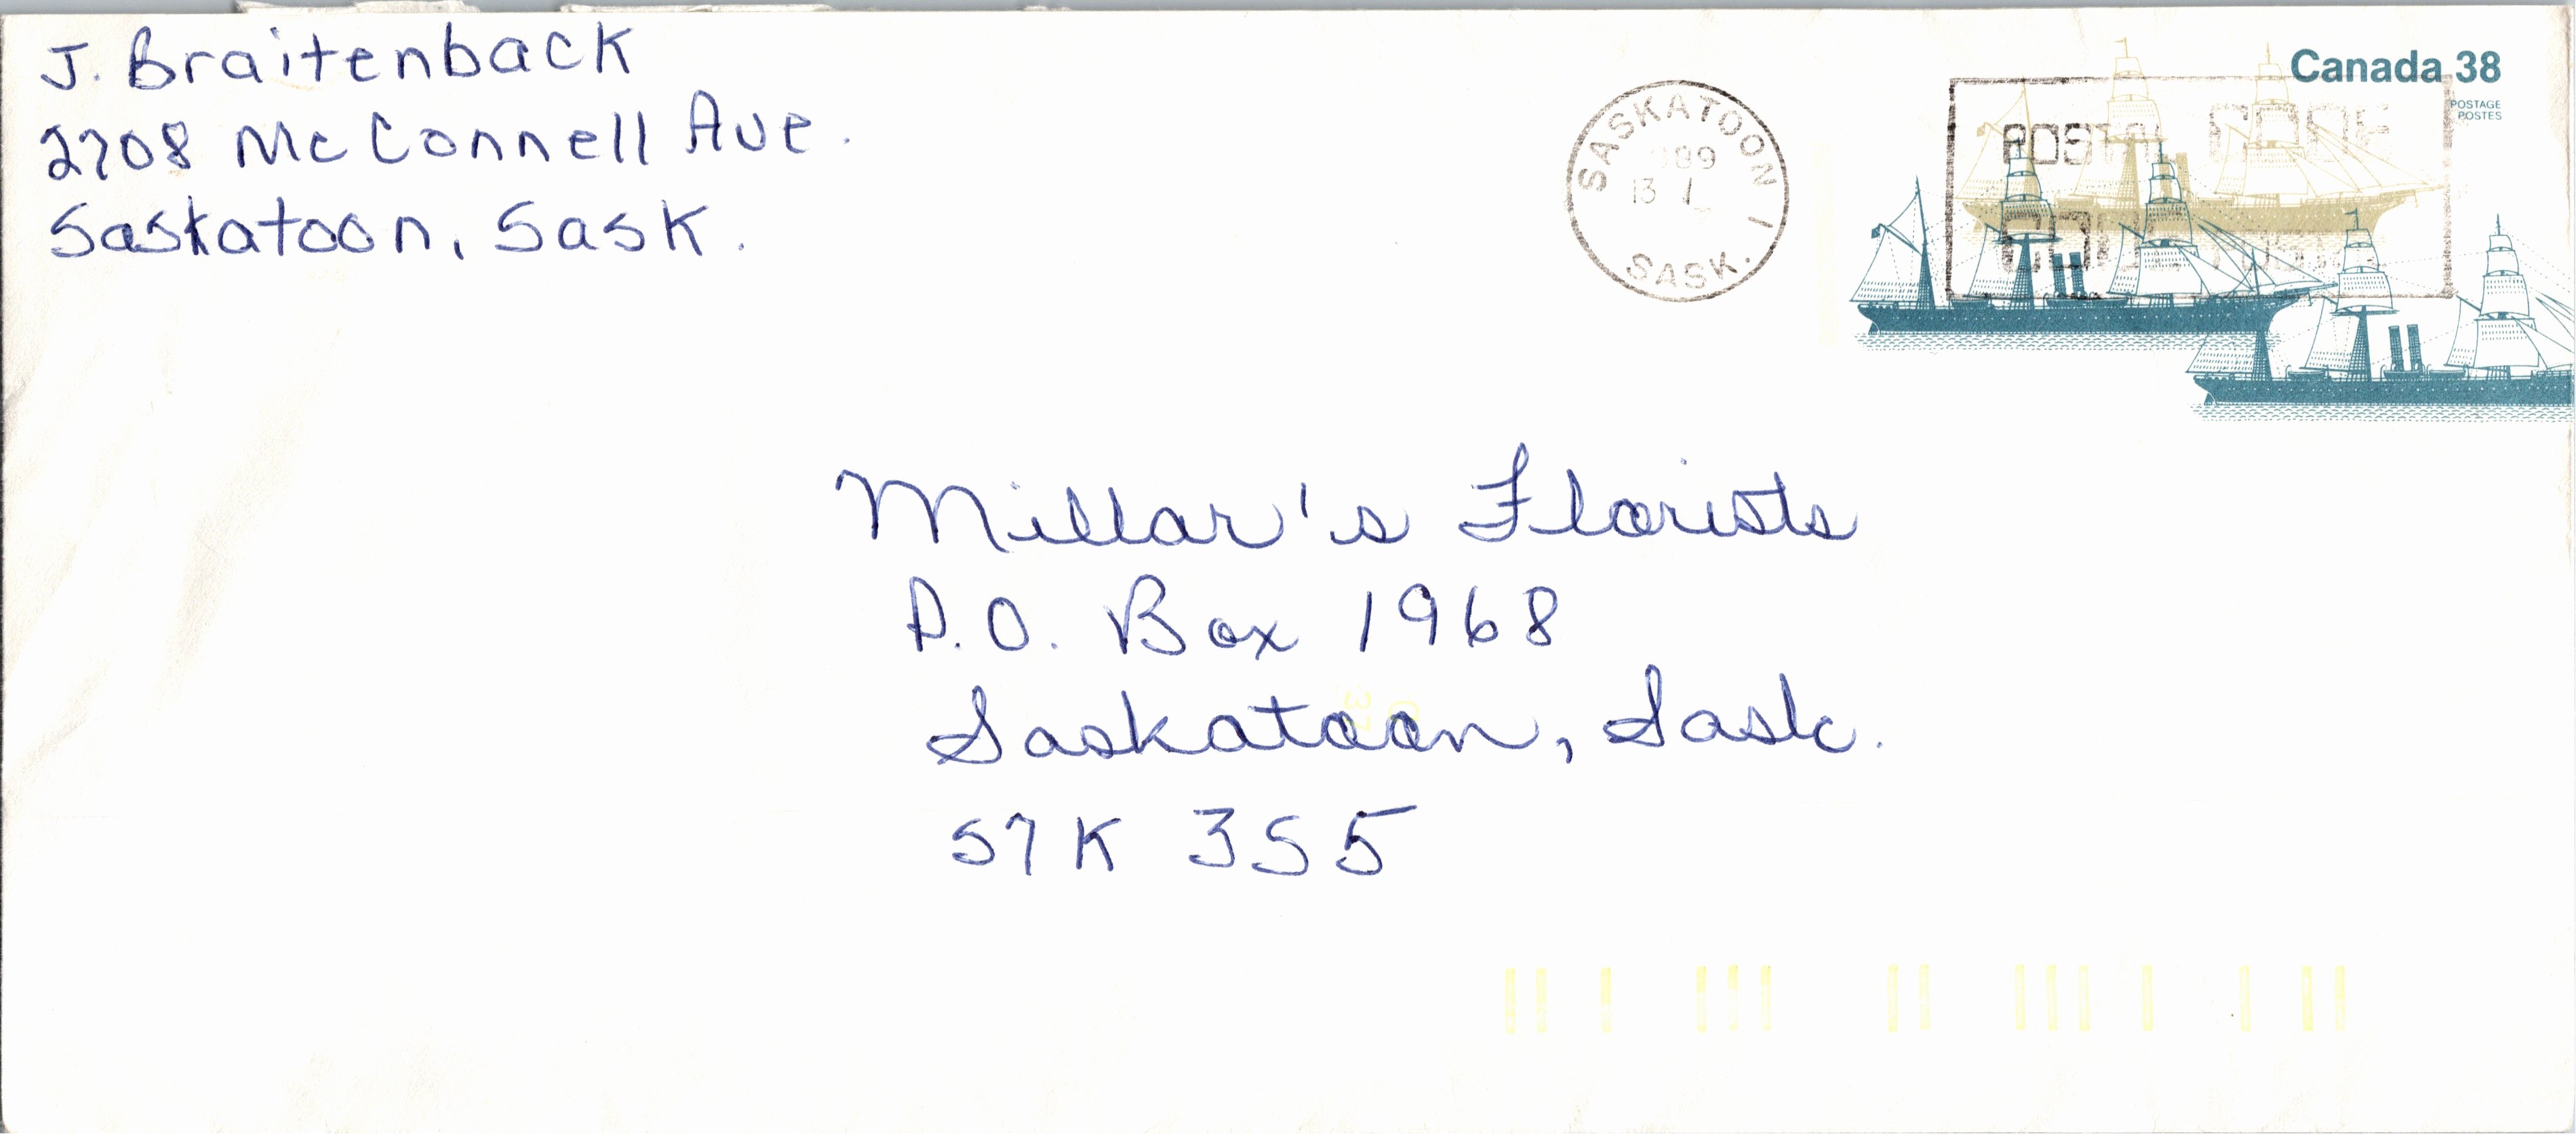 J. Braitenback
2708 McConnell Ave.
Saskatoon, Sask.
SASKATOON 1
13 1
SASK.
Canada 38
POSTAGE
POSTES
POSTAL CODE
Millar's Florists
P.O. Box 1968
Saskatoon, Sask.
S7K 3S5